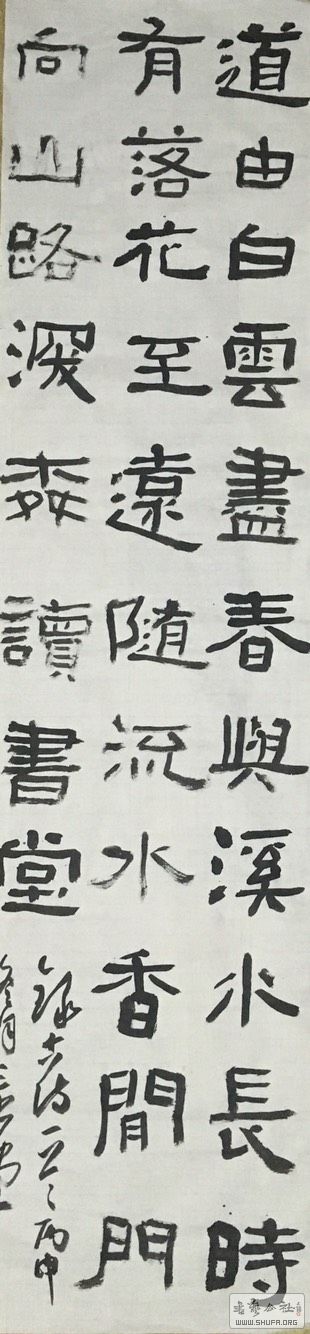 道由白雲盡春與溪水長時
有落花至遠隨流水香閒門
向山路深森讀書堂
錄古詩一首丙申
冬月
書藝公社
WWW.SHUFA.ORG